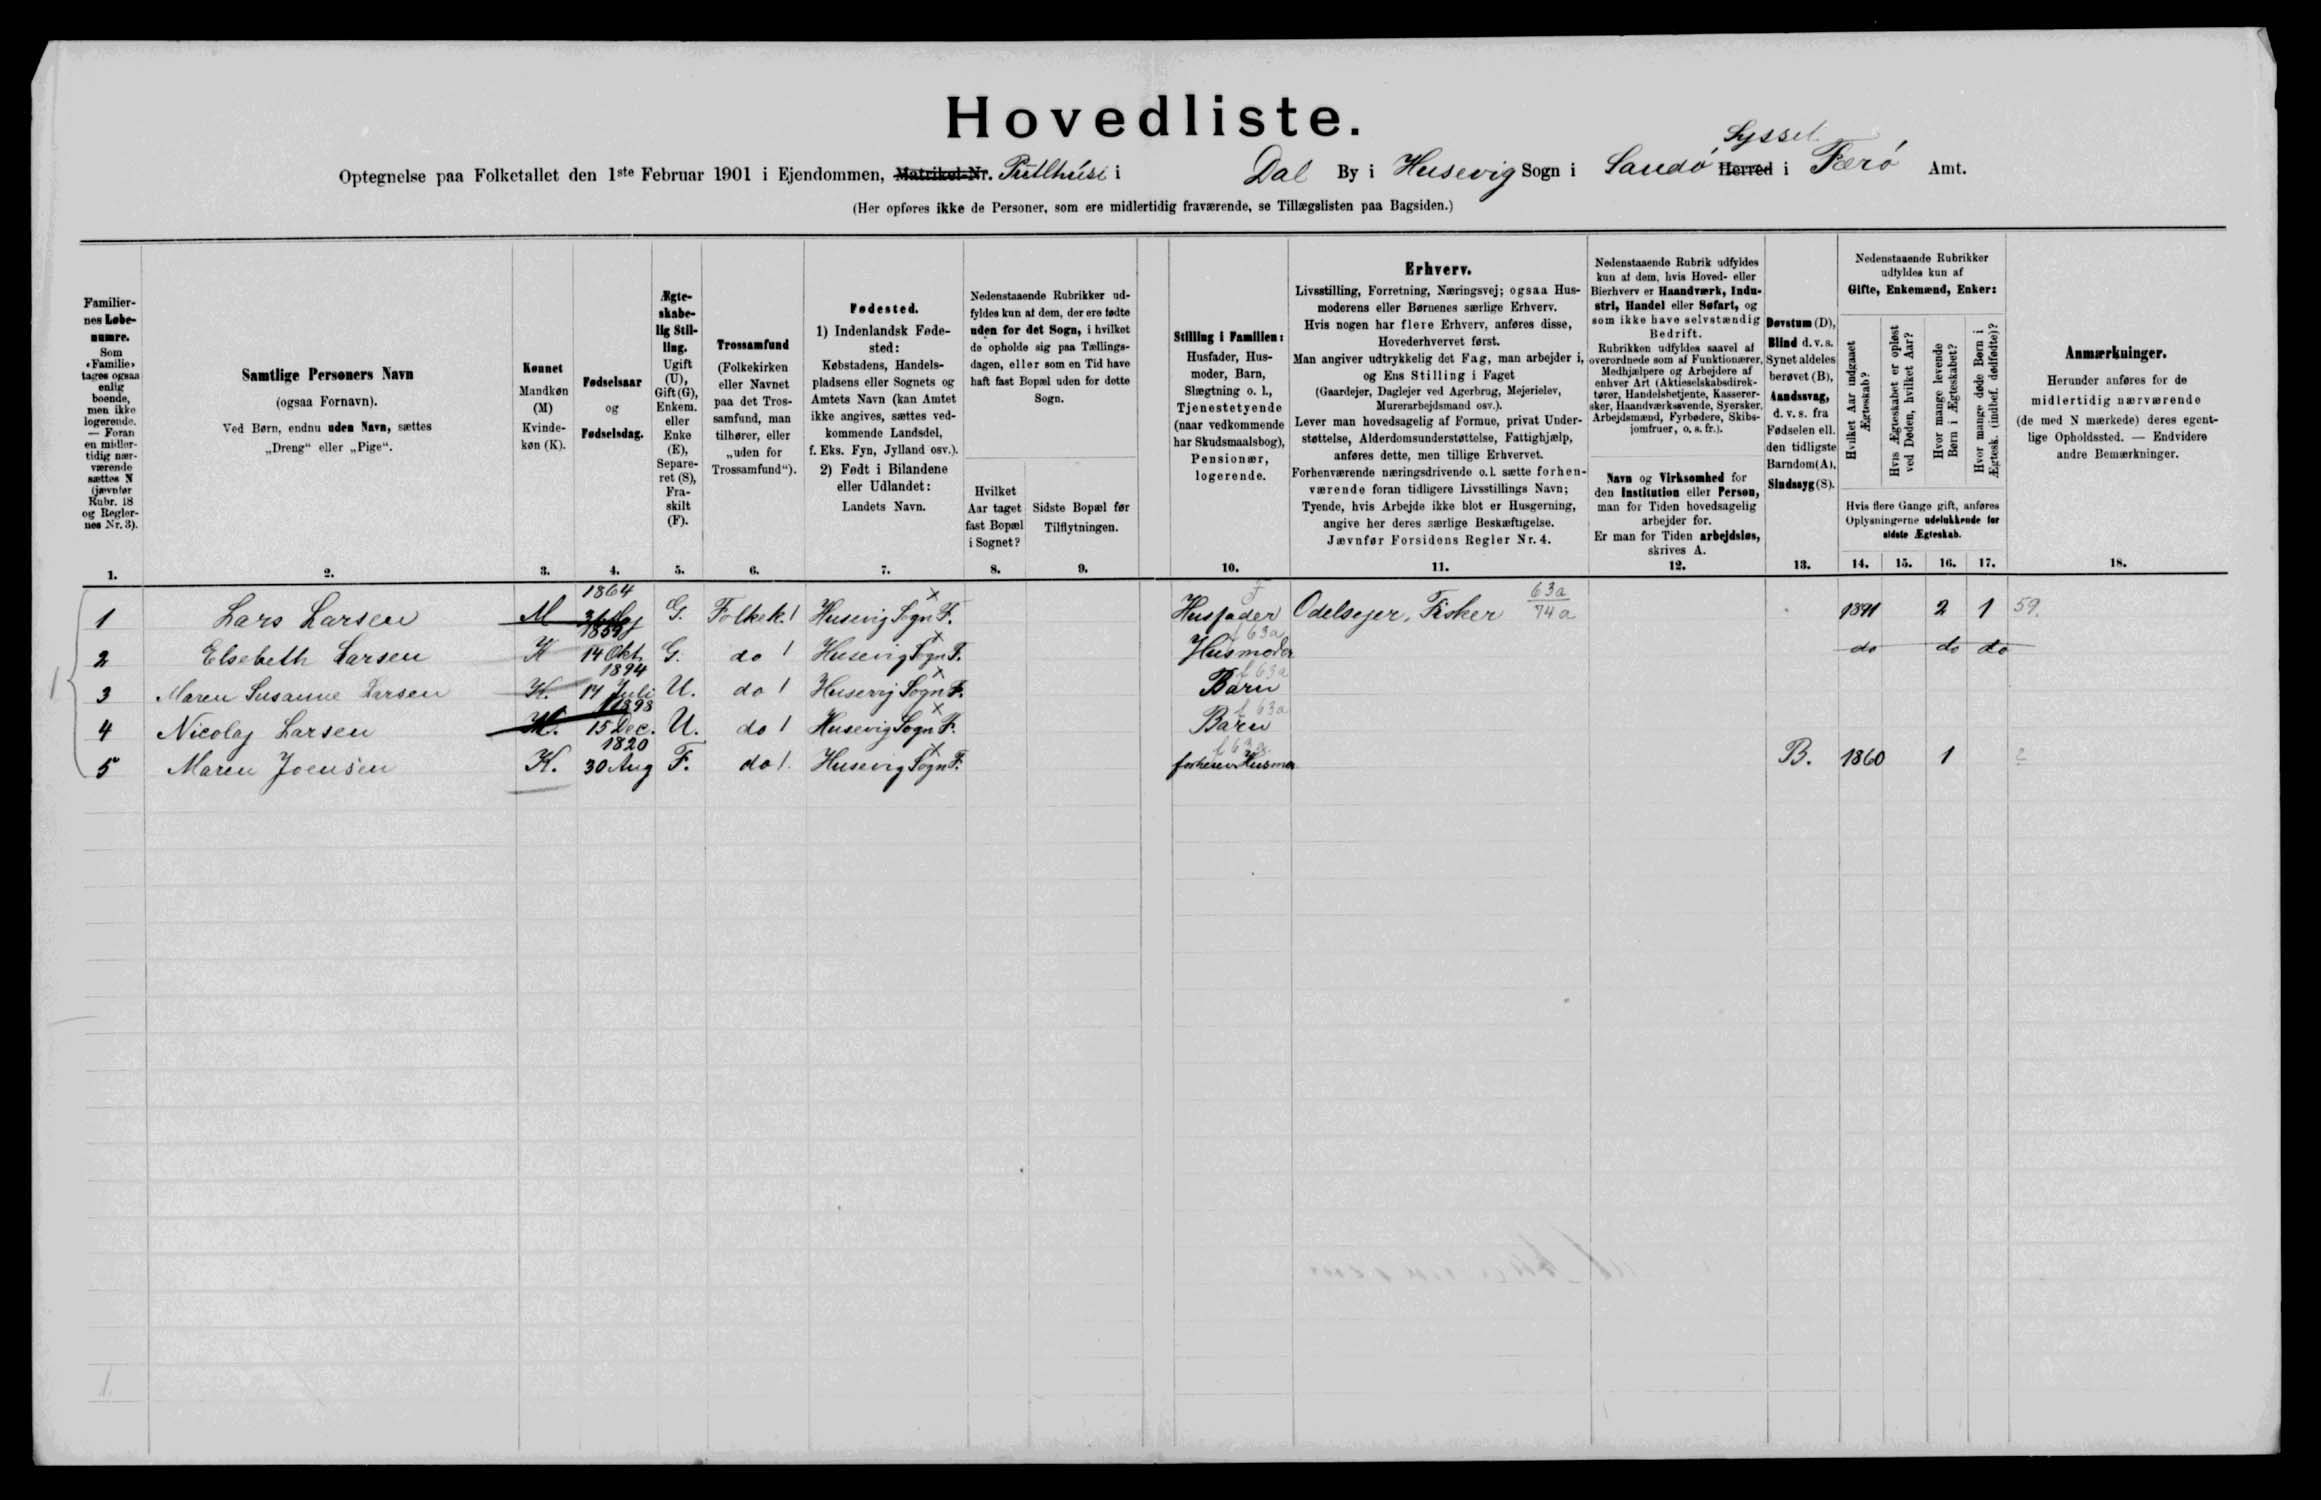 Hovedliste.
Syssel.
Optegnelse paa Folketallet den 1ste Februar 1901 i Ejendommen, Matrikel-Nr. i Dal By i Husevig Sogn i Sandø Herred i Færø Amt.
(Her opføres ikke de Personer, som ere midlertidig fraværende, se Tillægslisten paa Bagsiden.)
Familiernes Løbenumre.
Som «Familie» tages ogsaa enlig boende, men ikke logerende. — Foran en midlertidig nærværende sættes N (jævnfør Rubr. 18 og Reglernes Nr. 3).
Samtlige Personers Navn
(ogsaa Fornavn).
Ved Børn, endnu uden Navn, sættes
„Dreng“ eller „Pige“.
Kønnet
Mandkøn
(M)
Kvinde-
køn (K).
Fødselsaar
og
Fødselsdag.
Ægte-
skabe-
lig Stil-
ling.
Ugift
(U),
Gift (G),
Enkem.
eller
Enke
(E),
Separe-
ret (S),
Fra-
skilt
(F).
Trossamfund
(Folkekirken
eller Navnet
paa det Tros-
samfund, man
tilhører, eller
„uden for
Trossamfund“).
Fødested.
1) Indenlandsk Føde-
sted:
Købstadens, Handels-
pladsens eller Sognets og
Amtets Navn (kan Amtet
ikke angives, sættes ved-
kommende Landsdel,
f. Eks. Fyn, Jylland osv.).
2) Født i Bilandene
eller Udlandet:
Landets Navn.
Nedenstaaende Rubrikker ud-
fyldes kun af dem, der ere fødte
uden for det Sogn, i hvilket
de opholde sig paa Tællings-
dagen, eller som en Tid have
haft fast Bopæl uden for dette
Sogn.
Hvilket
Aar taget
fast Bopæl
i Sognet?
Sidste Bopæl før
Tilflytningen.
Stilling i Familien:
Husfader, Hus-
moder, Barn,
Slægtning o. l.,
Tjenestetyende
(naar vedkommende
har Skudsmaalsbog),
Pensionær,
logerende.
Erhverv.
Livsstilling, Forretning, Næringsvej; ogsaa Hus-
moderens eller Børnenes særlige Erhverv.
Hvis nogen har flere Erhverv, anføres disse,
Hovederhvervet først.
Man angiver udtrykkelig det Fag, man arbejder i,
og Ens Stilling i Faget
(Gaardejer, Daglejer ved Agerbrug, Mejerielev,
Murerarbejdsmand osv.).
Lever man hovedsagelig af Formue, privat Under-
støttelse, Alderdomsunderstøttelse, Fattighjælp,
anføres dette, men tillige Erhvervet.
Forhenværende næringsdrivende o. l. sætte forhen-
værende foran tidligere Livsstillings Navn;
Tyende, hvis Arbejde ikke blot er Husgerning,
angive her deres særlige Beskæftigelse.
Jævnfør Forsidens Regler Nr. 4.
Nedenstaaende Rubrik udfyldes
kun af dem, hvis Hoved- eller
Bierhverv er Haandværk, Indu-
stri, Handel eller Søfart, og
som ikke have selvstændig
Bedrift.
Rubrikken udfyldes saavel af
overordnede som af Funktionærer,
Medhjælpere og Arbejdere af
enhver Art (Aktieselskabsdirek-
tører, Handelsbetjente, Kasserer-
sker, Haandværkssvende, Syersker,
Arbejdsmænd, Fyrbødere, Skibs-
jomfruer, o. s. fr.).
Navn og Virksomhed for
den Institution eller Person,
man for Tiden hovedsagelig
arbejder for.
Er man for Tiden arbejdsløs,
skrives A.
Døvstum (D),
Blind d. v. s.
Synet aldeles
berøvet (B),
Aandssvag,
d. v. s. fra
Fødselen ell.
den tidligste
Barndom (A),
Sindssyg (S).
Nedenstaaende Rubrikker
udfyldes kun af
Gifte, Enkemænd, Enker:
Hvilket Aar indgaaet Ægteskab?
Hvis Ægteskabet er opløst ved Døden, hvilket Aar?
Hvor mange levende Børn i Ægteskabet?
Hvor mange døde Børn i Ægtesk. (indbef. dødfødte)?
Hvis flere Gange gift, anføres
Oplysningerne udelukkende for
sidste Ægteskab.
Anmærkninger.
Herunder anføres for de
midlertidig nærværende
(de med N mærkede) deres egent-
lige Opholdssted. — Endvidere
andre Bemærkninger.
1. 2. 3. 4. 5. 6. 7. 8. 9. 10. 11. 12. 13. 14. 15. 16. 17. 18.
1 Lars Larsen M 1864 G. Folkek. Husevig Sogn F. Husfader Odelsejer, Fisker 63a 74a 1891 2 1 59.
2 Elsebeth Larsen K 14 Okt. G. do Husevig Sogn F. 63a Husmoder do do do
3 Maren Susanne Larsen K. 1894 14 Juli U. do Husevig Sogn F. f 63a Barn
4 Nicolaj Larsen M. 1898 15 Dec. U. do Husevig Sogn F. f 63a Barn
5 Maren Joensen K. 1820 30 Aug F. do Husevig Sogn F. f 63a B. 1860 1